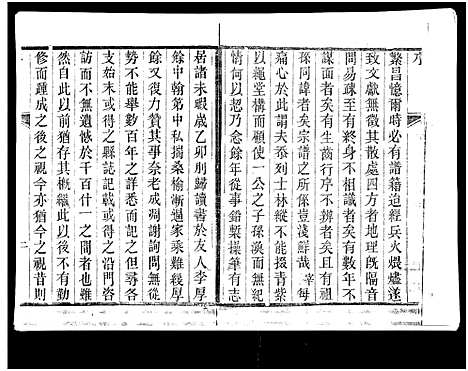 序
繁昌憶爾時必有譜籍迨經兵火煨燼遂
致文獻無徵其散處四方者地理旣隔音
問易疎王至有終身不相識者矣有數年不
謀面者矣有生齒行序不辨者矣有祖
孫同諱者矣宗譜之所係豈淺鮮哉宰每
痛心於此第夫忝列士林縱不能掇青紫
以繩堂構而顧使一公之子孫漠無紀
情何以恝乃念餘年從事鉛槧操筆有志
居諸未暇歲乙卯刖歸讀書於友人李厚
餘中翰第中私揣桑榆漸過家乘難緩厚
餘又復力贊其事奈老成凋謝詢問無從
勢不能舉數百年之詳悉而記之但尋各
支始末或得之縣誌記載或得之沿門咨
訪而不無遺憾於千百什一之間者也雖
然自此以前猶存其概繼此以後不有勤
修而踵成之後之視今亦猶今之視昔則
二